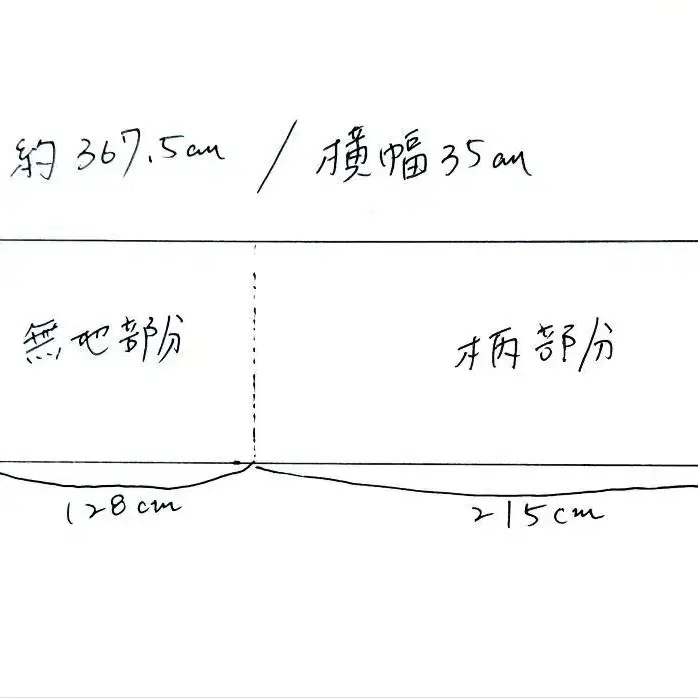 約367.5cm / 横幅35cm
無地部分
柄部分
128cm
215cm